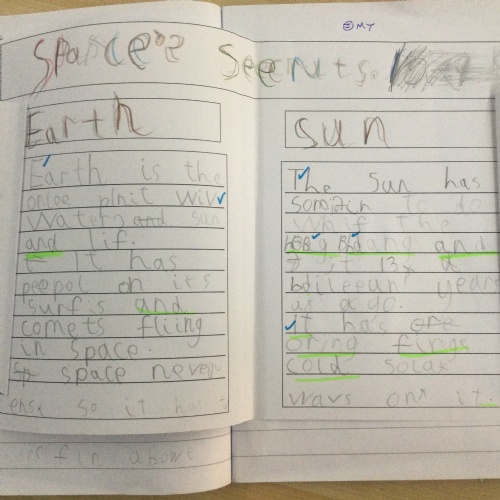 ③ MY
Space's Seerits.
Earth
Earth is the
onlee plnit wiv
water and sun
and lif.
It has
peepol on its
surfis and
comets fliing
in space.
Sp space never
ens so it has
fin abowt
Sun
The Sun has
somthin to do
with the
Big Bang and
it 13
billeeun years
as ago.
it has are
oring fings
cold solar
wavs on it.